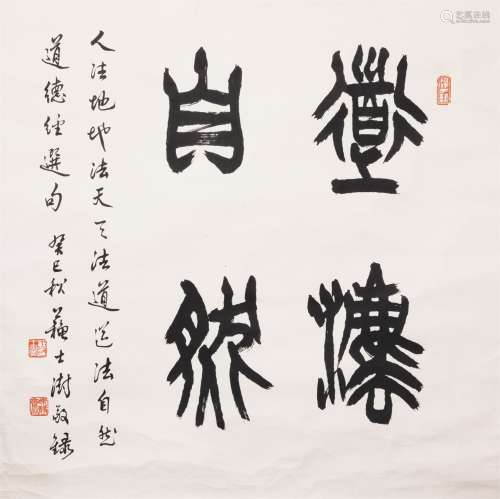 道法
自然
人法地地法天天法道道法自然
道德经選句 癸巳秋 蘇士澍敬録